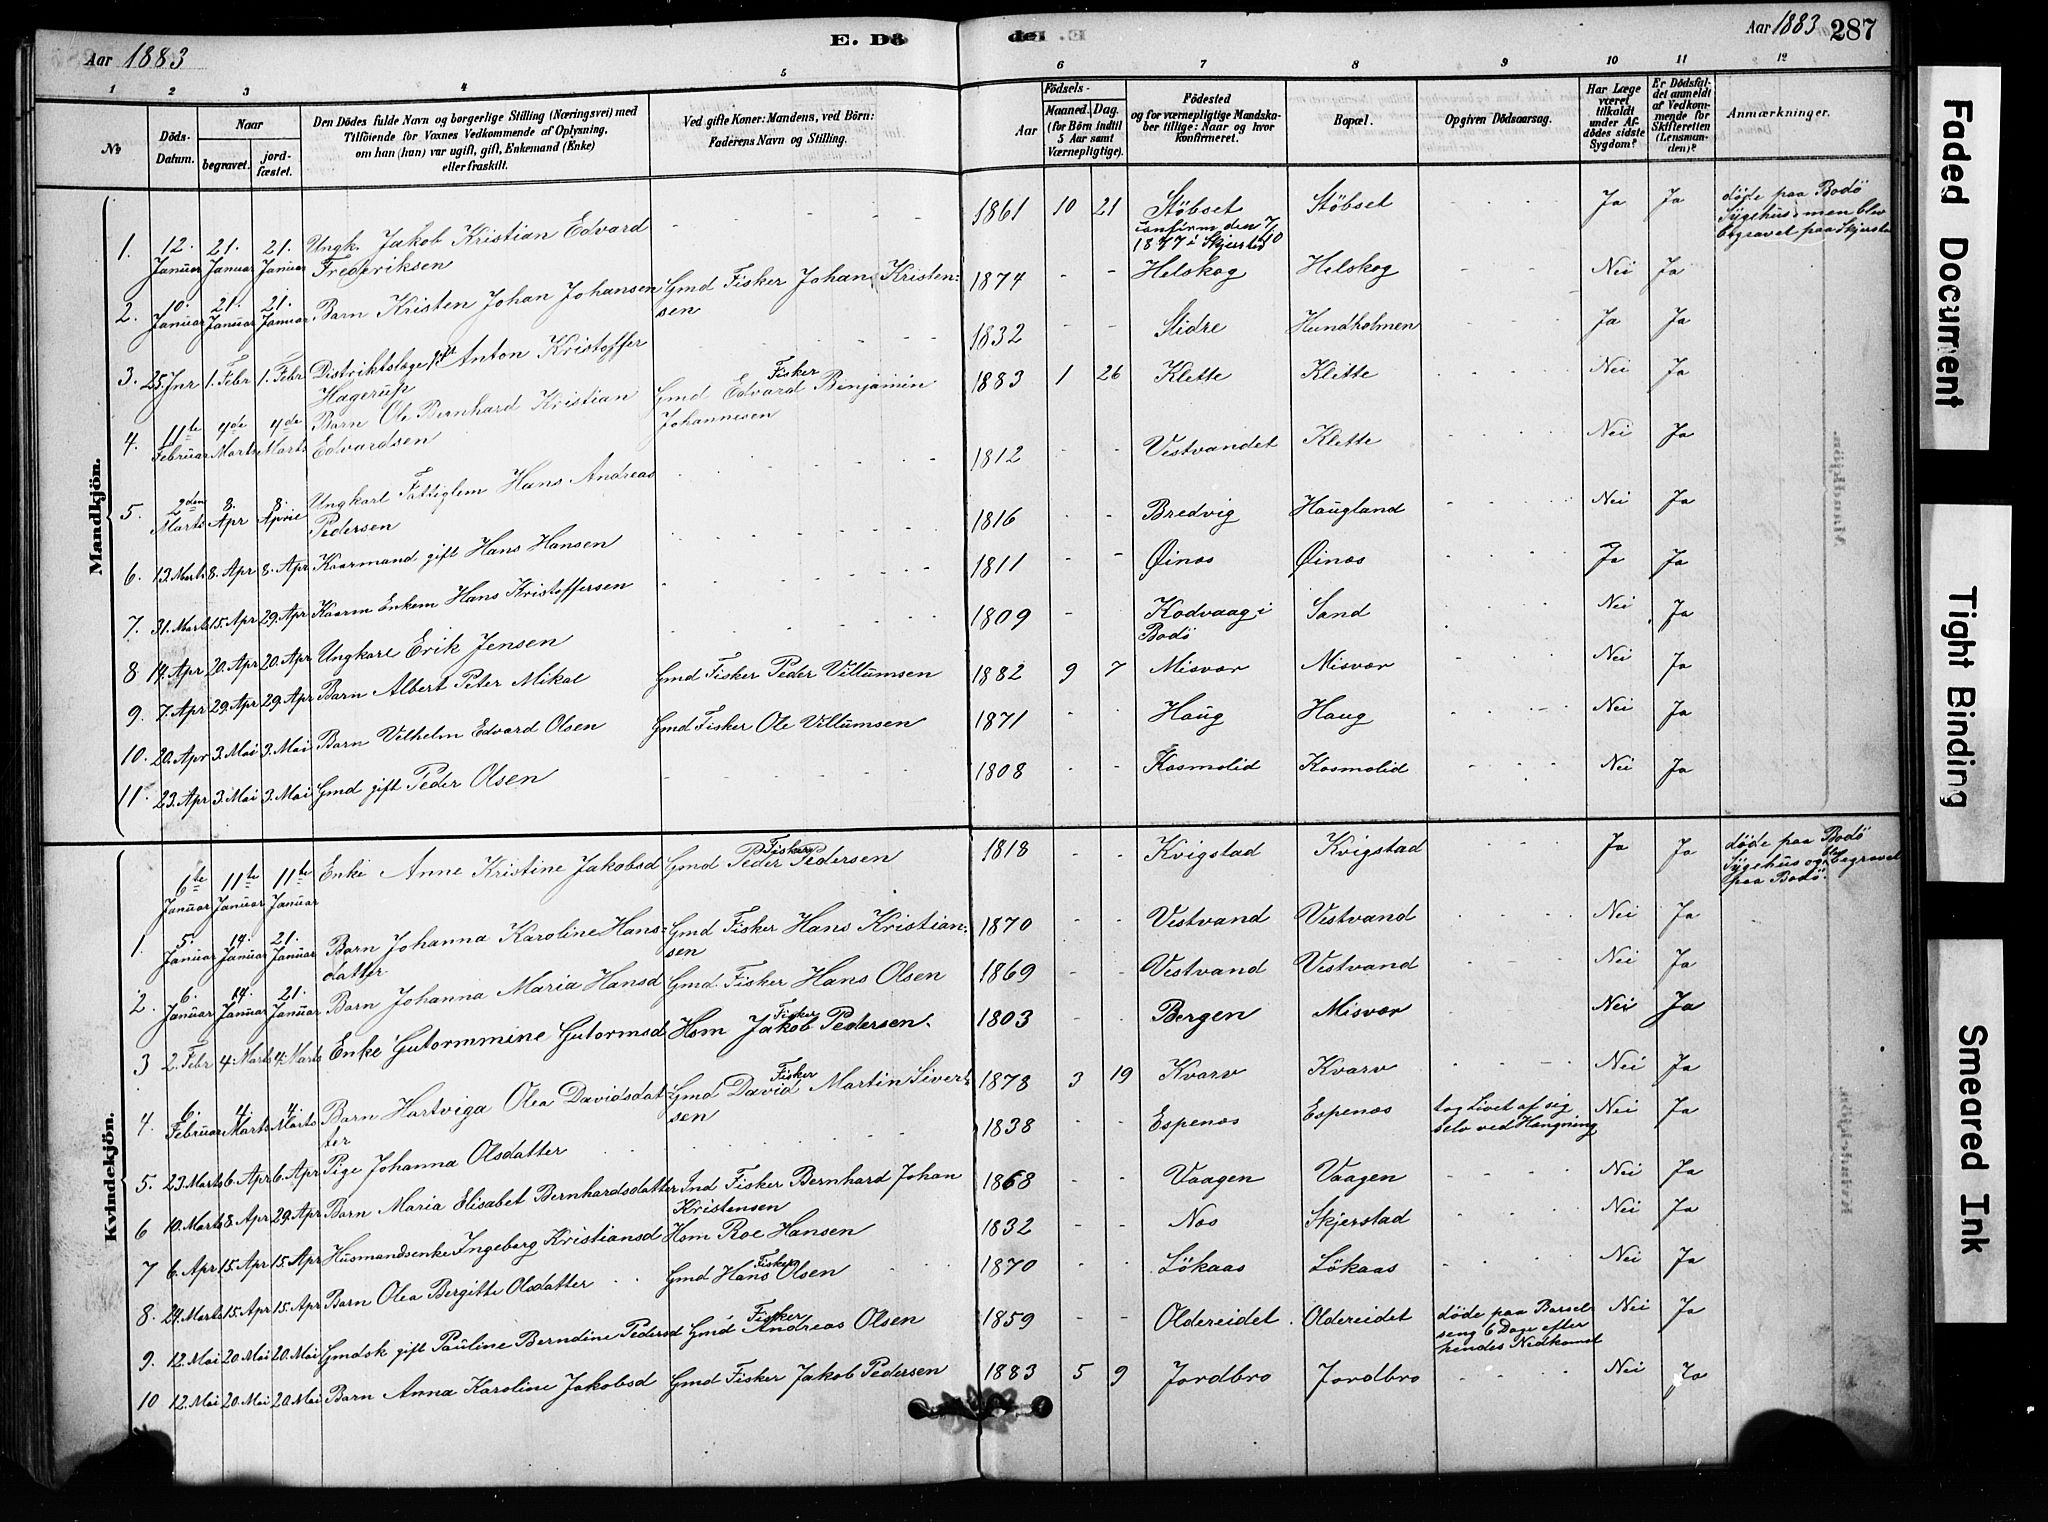 Aar 1883
E. Dö
de. E
Aar 1883
287
1 2 3 4 5 6 7 8 9 10 11 12
No
Döds-Datum.
Naar
begravet.
jord-fæstet.
Den Dödes fulde Navn og borgerlige Stilling (Næringsvei) med
Tilföiende for Voxnes Vedkommende af Oplysning,
om han (hun) var ugift, gift, Enkemand (Enke)
eller fraskilt.
Ved gifte Koner: Mandens, ved Börn:
Faderens Navn og Stilling.
Födsels-
Aar
Maaned. Dag.
(for Börn indtil
5 Aar samt
Værnepligtige).
Födested
og for værnepligtige Mandska-
ber tillige: Naar og hvor
Konfirmeret.
Bopæl.
Opgiven Dödsaarsag.
Har Læge
været
tilkaldt
under Af-
dödes sidste
Sygdom?
Er Dödsfal-
det anmeldt
af Vedkom-
mende for
Skifteretten
(Lensman-
den)?
Anmærkninger.
Mandkjön.
1. 12. Januar 21. Januar 21. Januar Ungk. Jakob Kristian Edvard Frederiksen - 1861 10 21 Støbset confirm den 7/10 1877 i Skjerstad Støbset - Ja Ja døde paa Bodø Sygehus, men blev begravet paa Skjerstad
2. 10. Januar 21. Januar 21. Januar Barn Kristen Johan Johansen Gmd Fisker Johan Kristensen 1874 - - Helskog Helskog - Nei Ja
3. 25. Jnr 1. Febr 1. Febr Distriktslæge gift Anton Kristoffer Hagerup - 1832 - - Slidre Hundholmen - Ja Ja
4. 11te Februar 4de Marts 4de Marts Barn Ole Bernhard Kristian Edvardsen Gmd Fisker Edvard Benjamin Johannesen 1883 1 26 Klette Klette - Nei Ja
5. 2den Marts 8. Apr 8. Aprie Ungkarl Fattiglem Hans Andreas Pedersen - 1812 - - Vestvandet Klette - Nei Ja
6. 13. Marts 8. Apr 8. Apr Kaarmand gift Hans Hansen - 1816 - - Bredvig Haugland - Nei Ja
7. 31. Marts 15. Apr 29. Apr Kaarm Enkem Hans Kristoffersen - 1811 - - Øinæs Øinæs - Ja Ja
8 14. Apr 20. Apr 20. Apr Ungkarl Erik Jensen - 1809 - Kodvaag i Bodø Sand - Nei Ja
9. 7. Apr 29. Apr 29. Apr Barn Albert Peter Mikal Gmd Fisker Peder Villumsen 1882 9 7 Misvær Misvær - Nei Ja
10. 20. Apr 3. Mai 3. Mai Barn Vilhelm Edvard Olsen Gmd Fisker Ole Villumsen 1871 - - Haug Haug - Nei Ja
11. 23. Apr 3. Mai 3. Mai Gmd gift Peder Olsen - 1808 - - Kosmolid Kosmolid - Nei Ja
Kvindekjön.
6te Januar 11te Januar 11te Januar Enke Anne Kristine Jakobsd Gmd Fisker Peder Pedersen 1818 - - Kvigstad Kvigstad - Ja Ja døde paa Bodø Sygehus og blev begravet paa Bodø.
1. 5. Januar 14. Januar 21. Januar Barn Johanna Karoline Hansdatter Gmd Fisker Hans Kristiansen 1870 - - Vestvand Vestvand - Nei Ja
2. 6. Januar 14. Januar 21. Januar Barn Johanna Maria Hansd Gmd Fisker Hans Olsen 1869 - - Vestvand Vestvand - Nei Ja
3 2. Febr 4. Marts 4. Marts Enke Gutormmine Gutormsd Hsm Fisker Jakob Pedersen. 1803 - - Bergen Misvær Nei Ja
4. 6. Februar 4. Marts 4. Marts Barn Hartviga Olea Davidsdatter Gmd Fisker David Martin Sivertsen 1878 3 19 Kvarv Kvarv - Nei Ja
5. 23. Marts 6. Apr 6. Apr Pige Johanna Olsdatter - 1838 - - Espenæs Espenæs tog Livet af sig selv ved Hængning Nei Ja
6 10. Marts 8. Apr 29. Apr Barn Maria Elisabet Bernhardsdatter Ind Fisker Bernhard Johan Kristensen 1868 - - Vaagen Vaagen - Nei Ja
7 6. Apr 15. Apr 15. Apr Husmandsenke Ingeborg Kristiansd Hsm Roe Hansen 1832 - - Næs Skjerstad - Nei Ja
8. 24. Marts 15. Apr 15. Apr Barn Olea Bergitte Olsdatter Gmd Fisker Hans Olsen 1870 - - Løkaas Løkaas - Nei Ja
9. 12. Mai 20. Mai 20. Mai Gmdsk gift Pauline Berndine Pedersd Gmd Fisker Andreas Olsen 1859 - - Oldereidet Oldereidet døde paa Barselseng 6 Dage efter hendes Nedkomst Nei Ja
10 12. Mai 20. Mai 20. Mai Barn Anna Karoline Jakobsd Gmd Fisker Jakob Pedersen 1883 5 9 Jordbro Jordbro - Nei Ja
Faded Document
Tight Binding
Smeared Ink